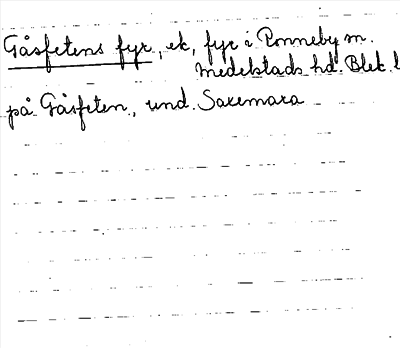 Gåsfetens fyr, ek, fyr i Ronneby sn.
Medelstads hd. Blek. l
på Gåsfeten, und. Saxemara